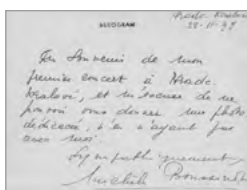 Hradec
En Souvenir de mon
premier concert à Hradec
Kralové, et m'excuse de ne
pouvoir vous donner une photo
dédicacée, n'en n'ayant pas
avec moi.
Sympathiquement,
Michèle